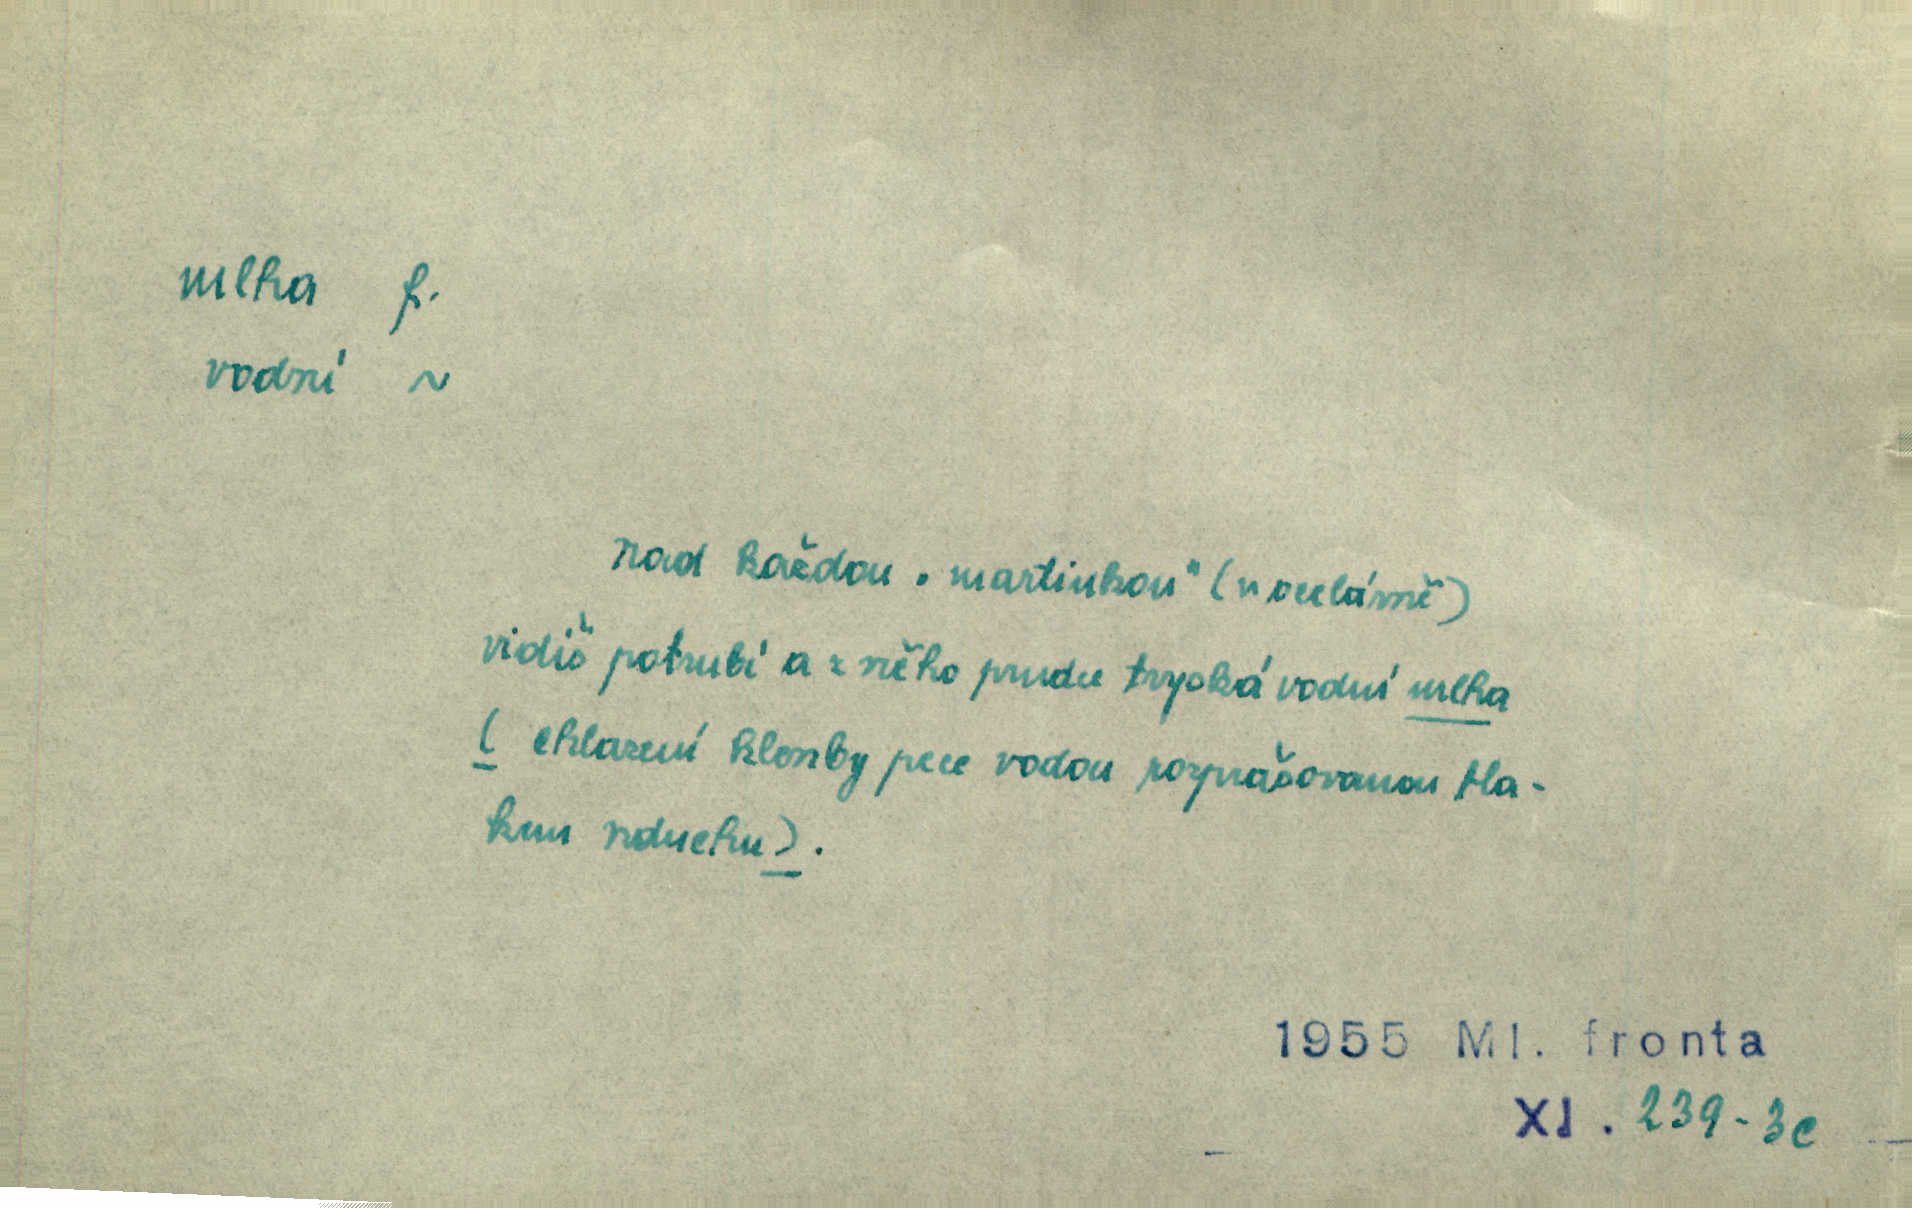 mlha f.
vodní ~
Nad každou „martinkou" (v ocelárně)
vidíš potrubí a z něho prudce tryská vodní mlha
( chlazení klenby pece vodou rozprašovanou tla-
kem vzduchu).
1955 Ml. fronta
XI. 239-3c